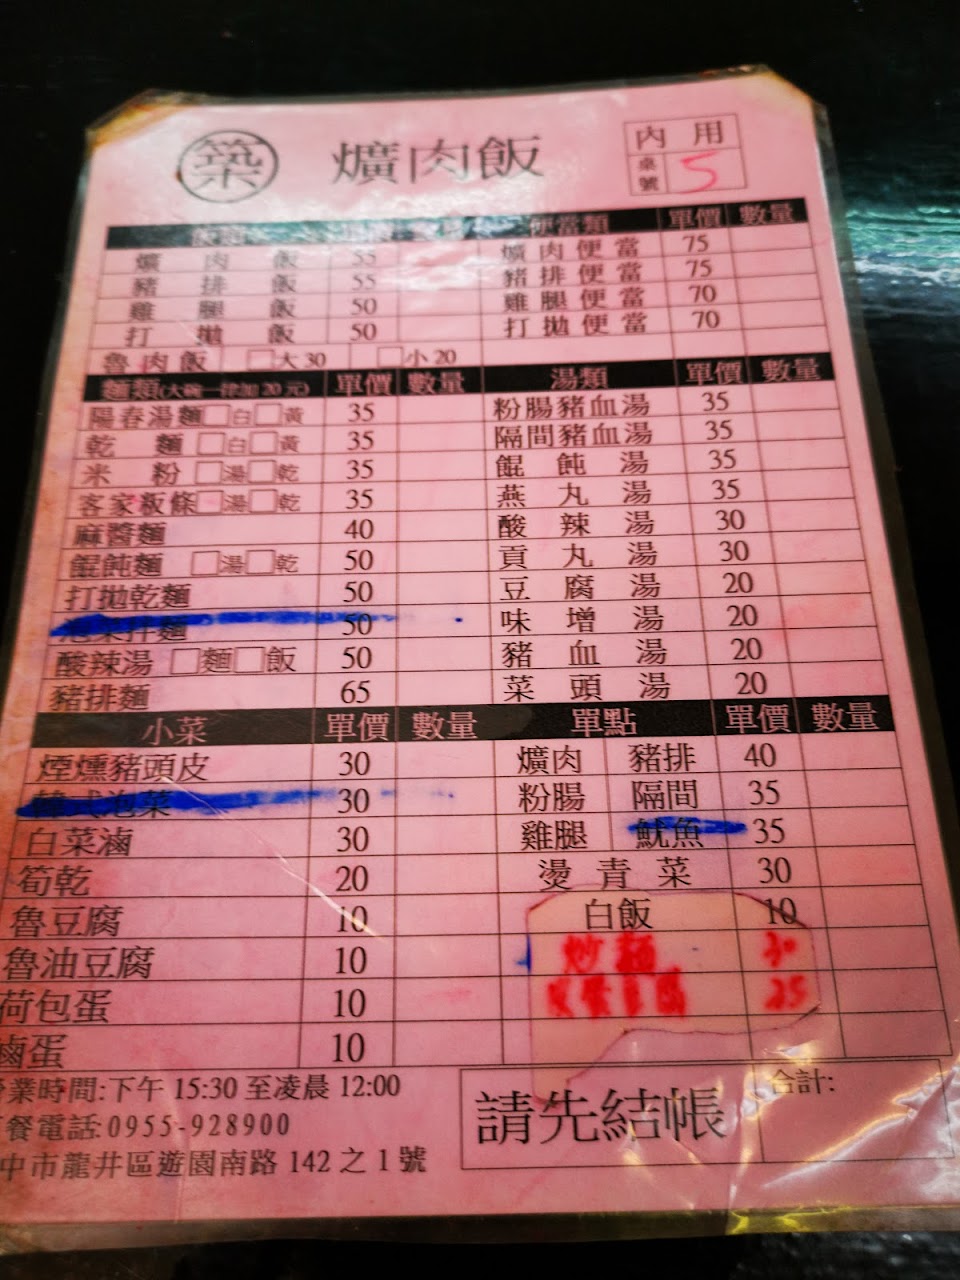 築 爌肉飯 內用
桌號 5
便當類 單價 數量
爌肉飯 55 爌肉便當 75
豬排飯 55 豬排便當 75
雞腿飯 50 雞腿便當 70
打拋飯 50 打拋便當 70
魯肉飯 □大30 □小20
麵類(大碗一律加20元) 單價 數量 湯類 單價 數量
陽春湯麵□白□黃 35 粉腸豬血湯 35
乾麵□白□黃 35 隔間豬血湯 35
米粉□湯□乾 35 餛飩湯 35
客家粄條□湯□乾 35 燕丸湯 35
麻醬麵 40 酸辣湯 30
餛飩麵□湯□乾 50 貢丸湯 30
打拋乾麵 50 豆腐湯 20
泡菜拌麵 50 味增湯 20
酸辣湯□麵□飯 50 豬血湯 20
豬排麵 65 菜頭湯 20
小菜 單價 數量 單點 單價 數量
煙燻豬頭皮 30 爌肉 豬排 40
韓式泡菜 30 粉腸 隔間 35
白菜滷 30 雞腿 魷魚 35
筍乾 20 燙青菜 30
魯豆腐 10 白飯 10
魯油豆腐 10 炒麵 30
荷包蛋 10 25
滷蛋 10
營業時間:下午 15:30 至凌晨 12:00
餐電話:0955-928900
中市龍井區遊園南路 142 之 1 號
請先結帳 合計: